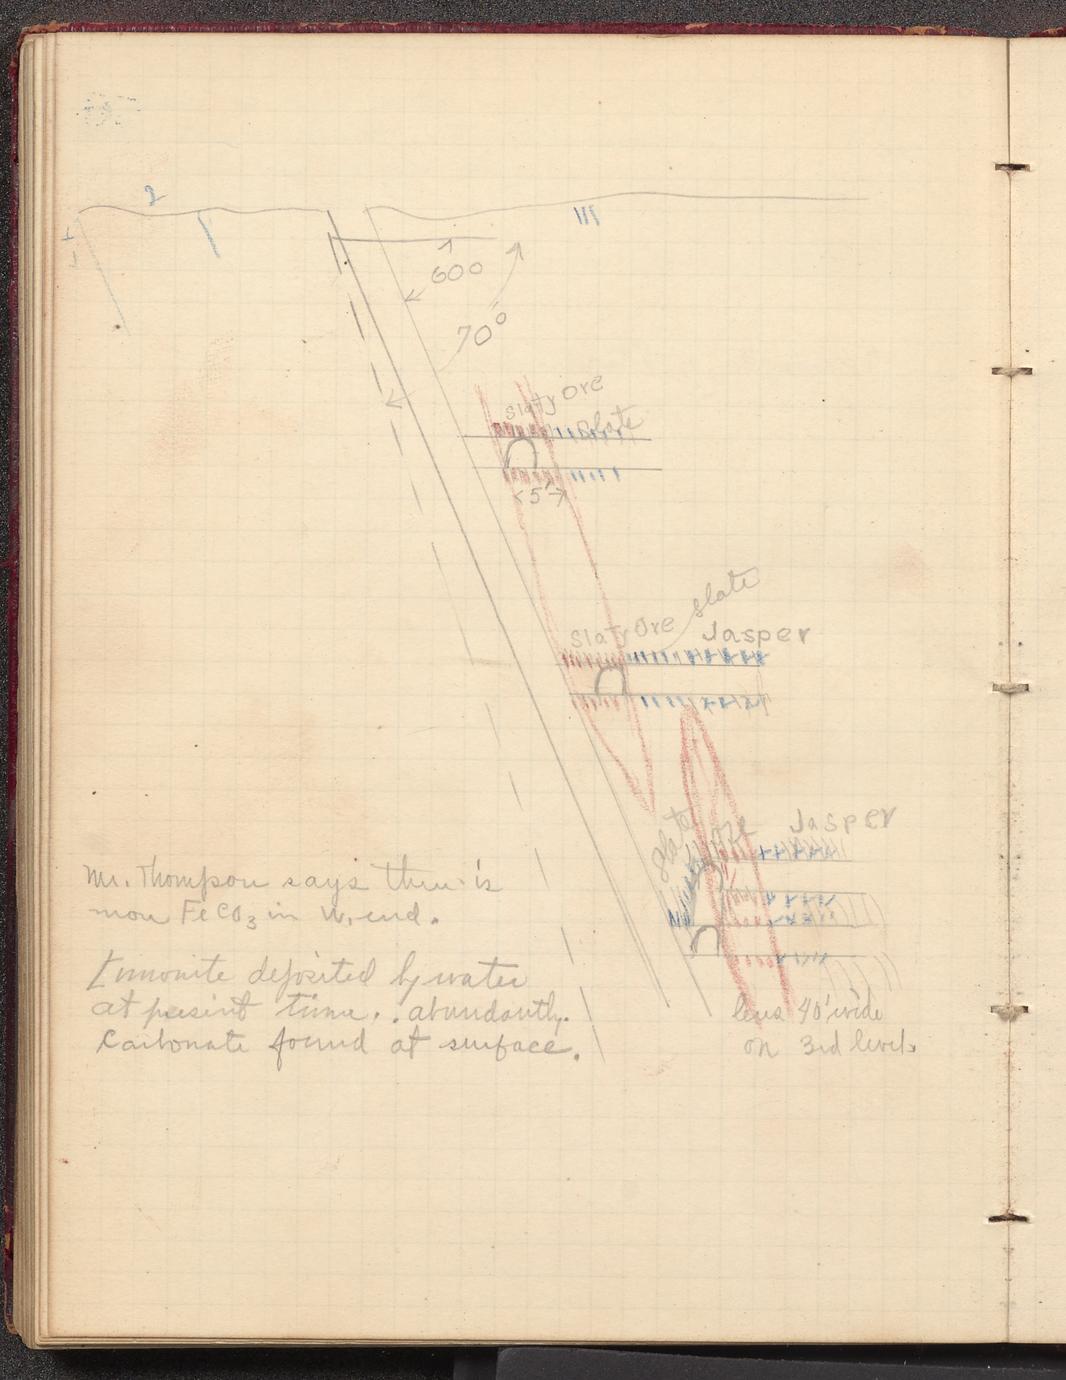 2
III
60°
70°
Slaty Ore
slate
<5'>
slate
Slaty Ore
Jasper
Jasper
slate
Ore
Mr. Thompson says there is
more FeCO3 in W. end.
Limonite deposited by water
at present time. . abundantly.
Carbonate found at surface.
lens 40' wide
on 3rd level.